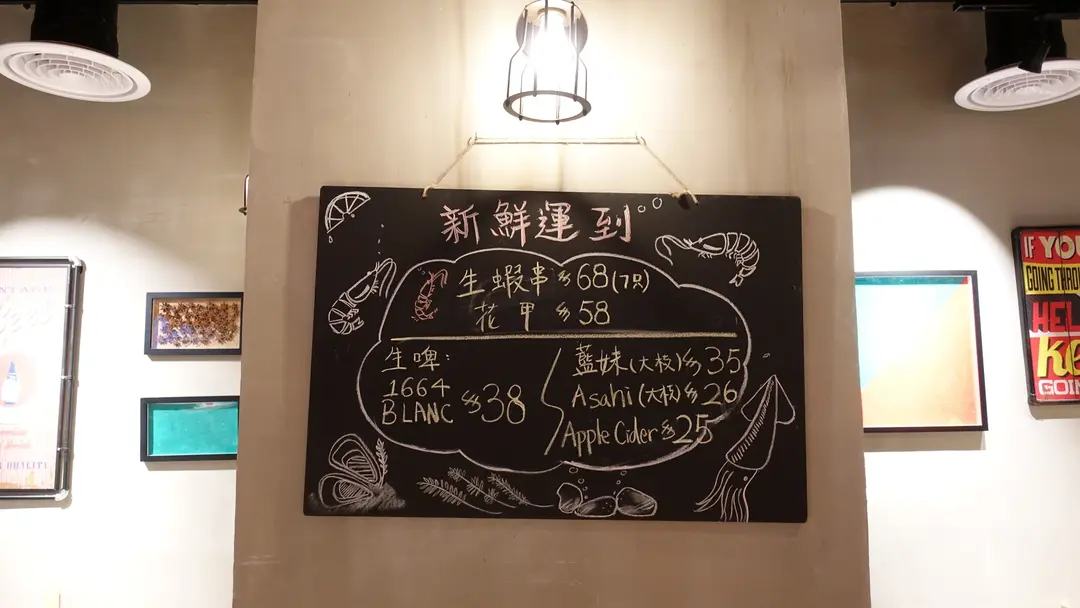 新鮮運到
生蝦串 $68(7只)
花甲 $58
生啤:
1664
BLANC $38
藍妹(大枝) $35
Asahi (大枝) $26
Apple Cider $25
IF YOU
GOING THROU
HELL
KE
GOIN